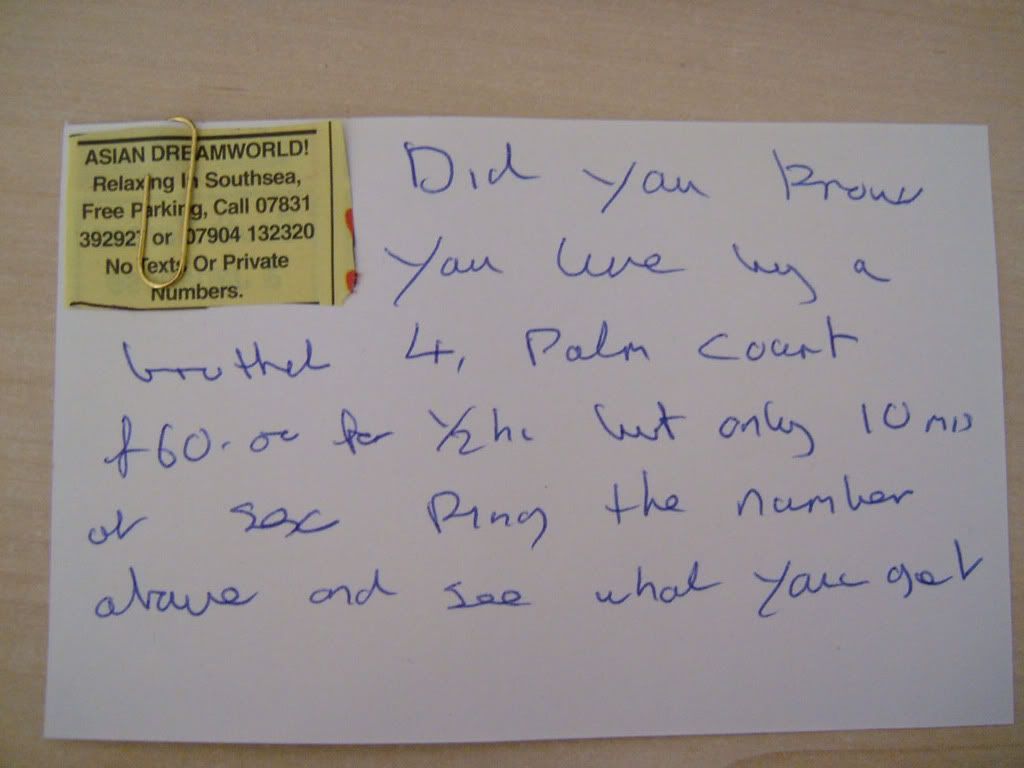 ASIAN DREAMWORLD!
Relaxing In Southsea,
Free Parking, Call 07831
392927 or 07904 132320
No Texts Or Private
Numbers.
Did you know
you live by a
brothel 4, Palm Court
£60.00 for 1/2 hr but only 10 mis
of sex Ring the number
above and see what you get